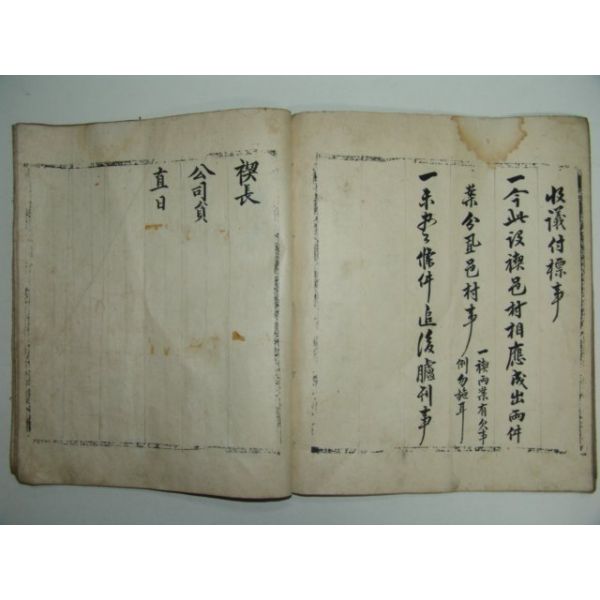 收議付標事
一今此設禊邑村相應成出兩件
葉分置邑村事
一禊兩葉有欠事
例勿施耳
一未盡條件追後臚列事
禊長
公司員
直日